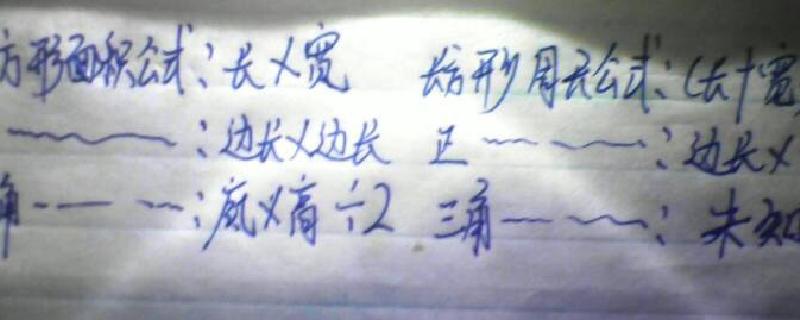 方形面积公式：长×宽 长方形周长公式：(长+宽
～～～：边长×边长 正～～～：边长×
角～～～：底×高÷2 三角～～～：未知